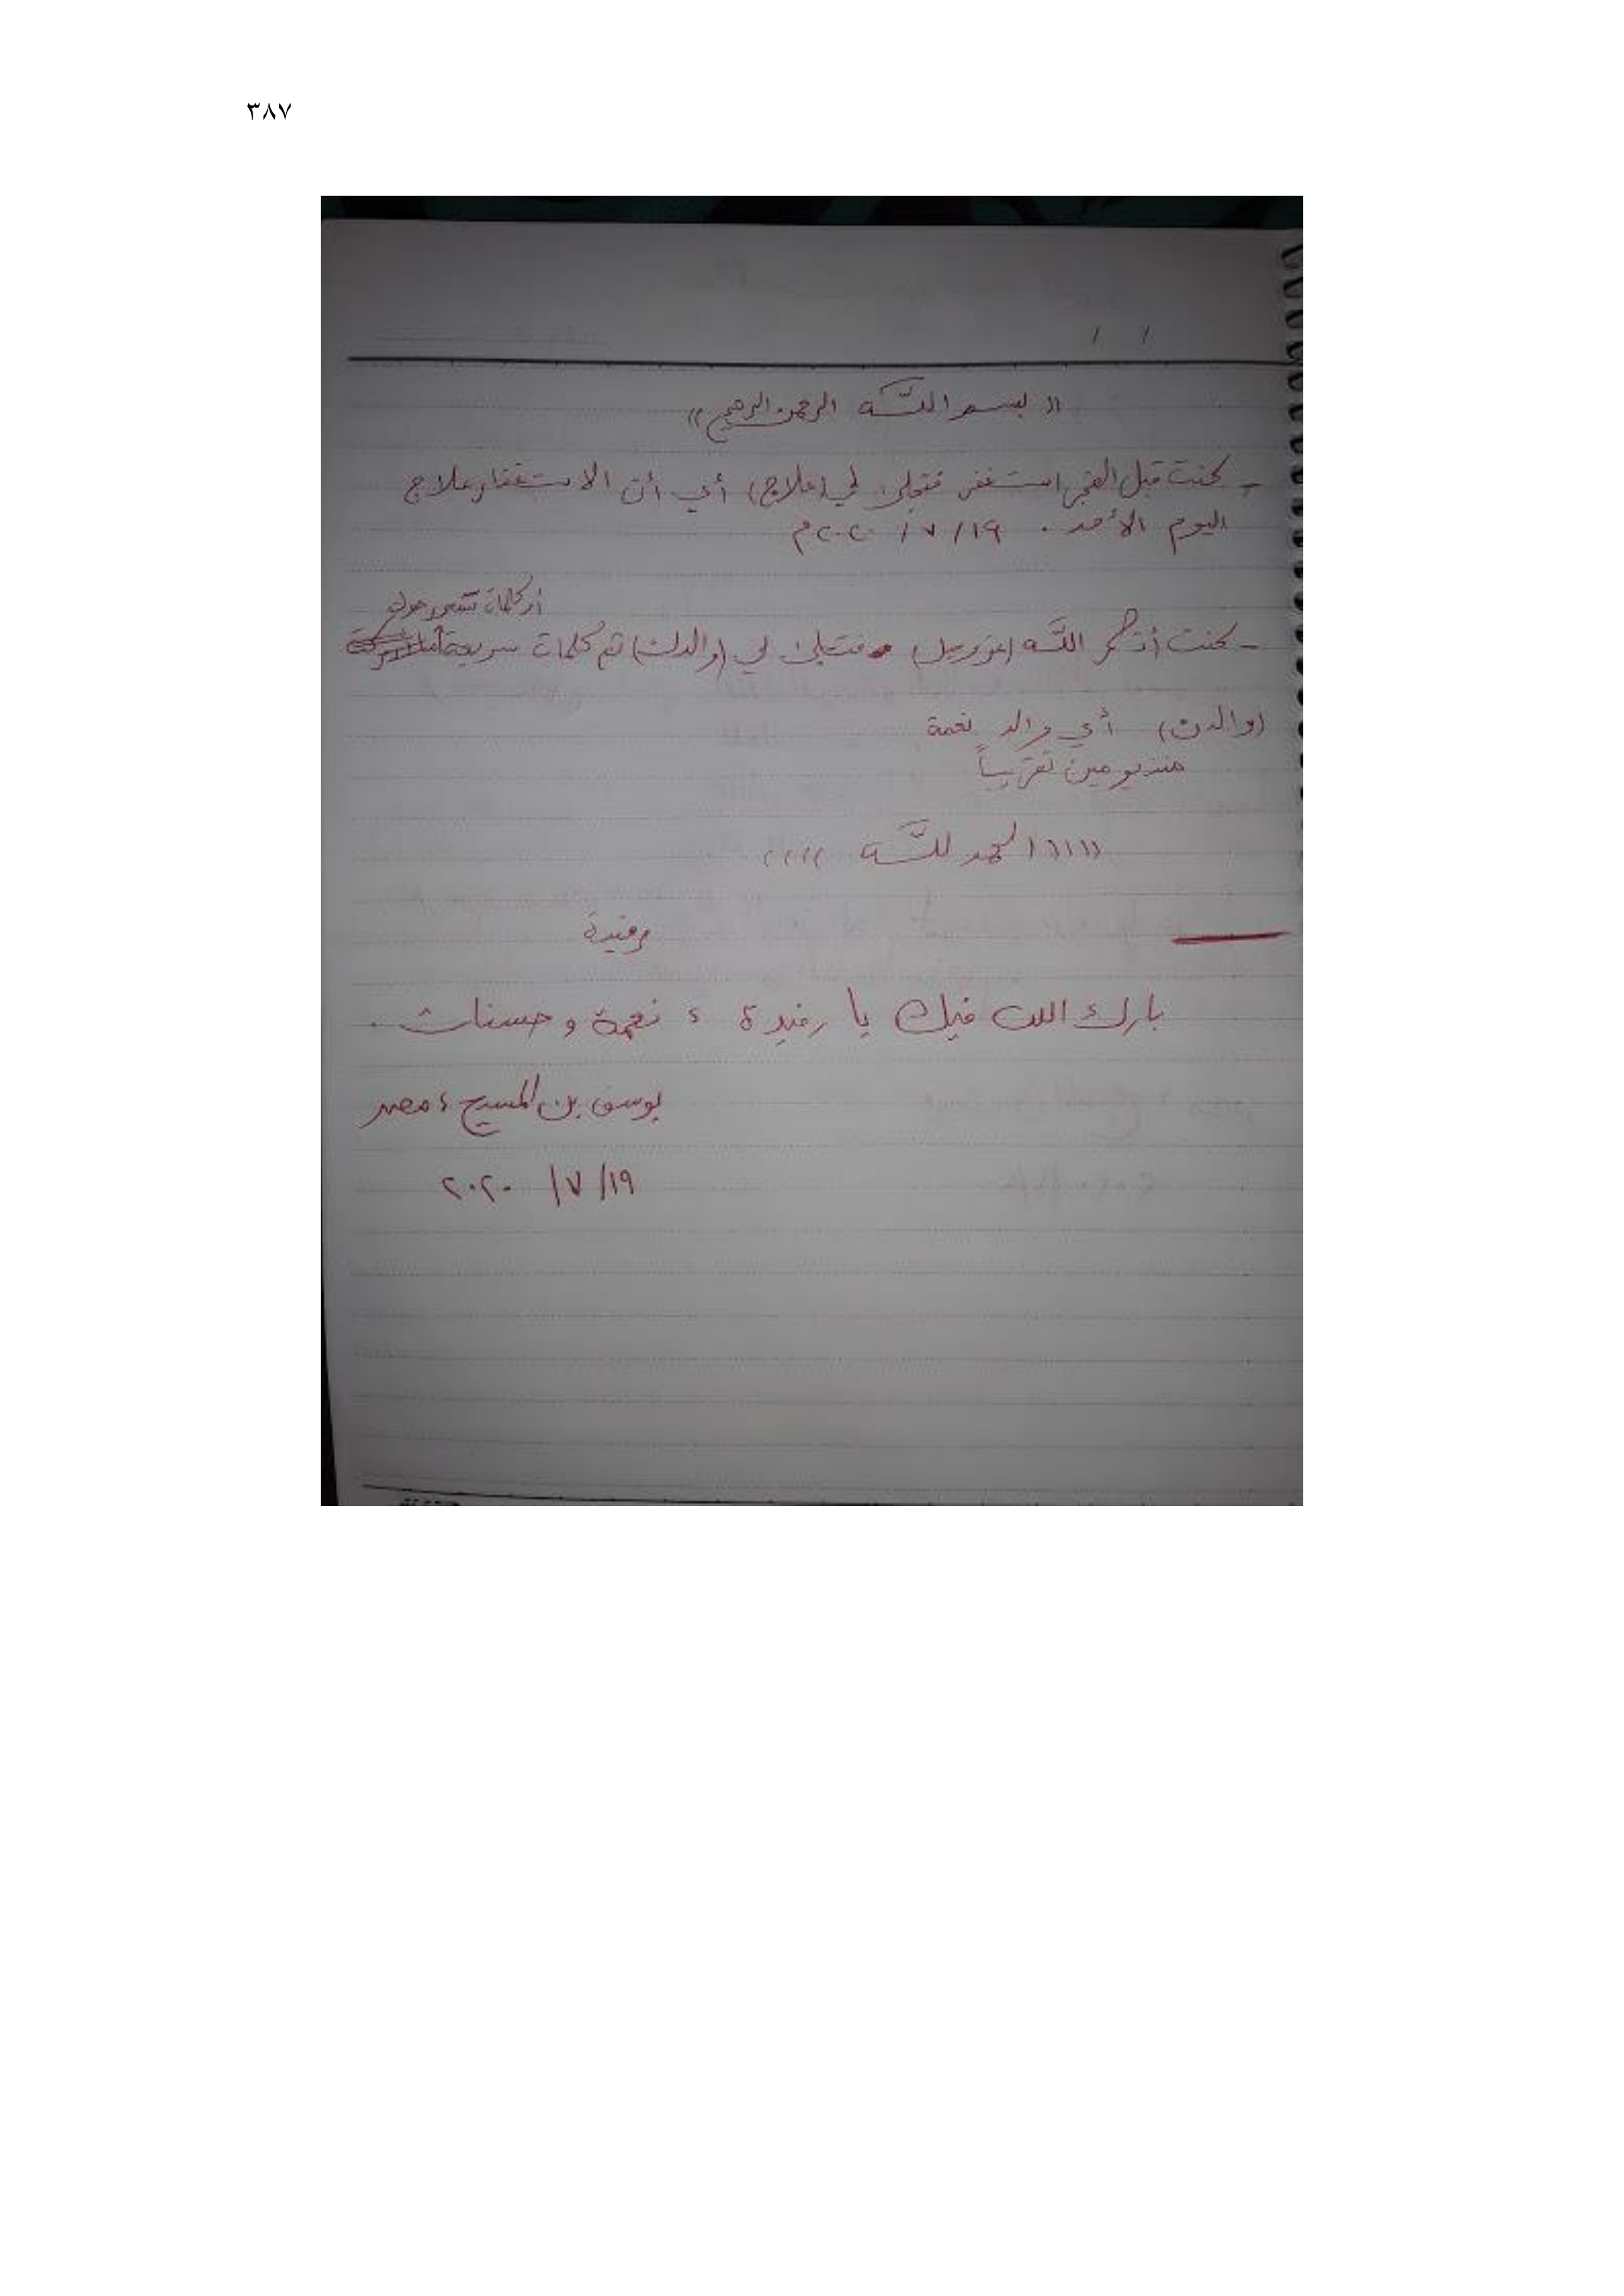 ٣٨٧
(( بسم اللّه الرحمن الرحيم ))
- كنت قبل الفجر استغفر فتجلى لي (علاج) أي أن الاستغفار علاج
اليوم الأحد . ١٩ / ٧ / ٢٠٢٠م
أو كلمات
- كنت أذكر اللّه (عزوجل) فتجلى لي (والدن) ثم كلمات سريعة
(والدن) أي والد نعمة
منذ يومين تقريباً
(((( الحمد للّه ))))
رفيدة
بارك الله فيك يا رفيدة ، نعمة وحسنات .
يوسف بن المسيح ، مصر
١٩/ ٧/ ٢٠٢٠